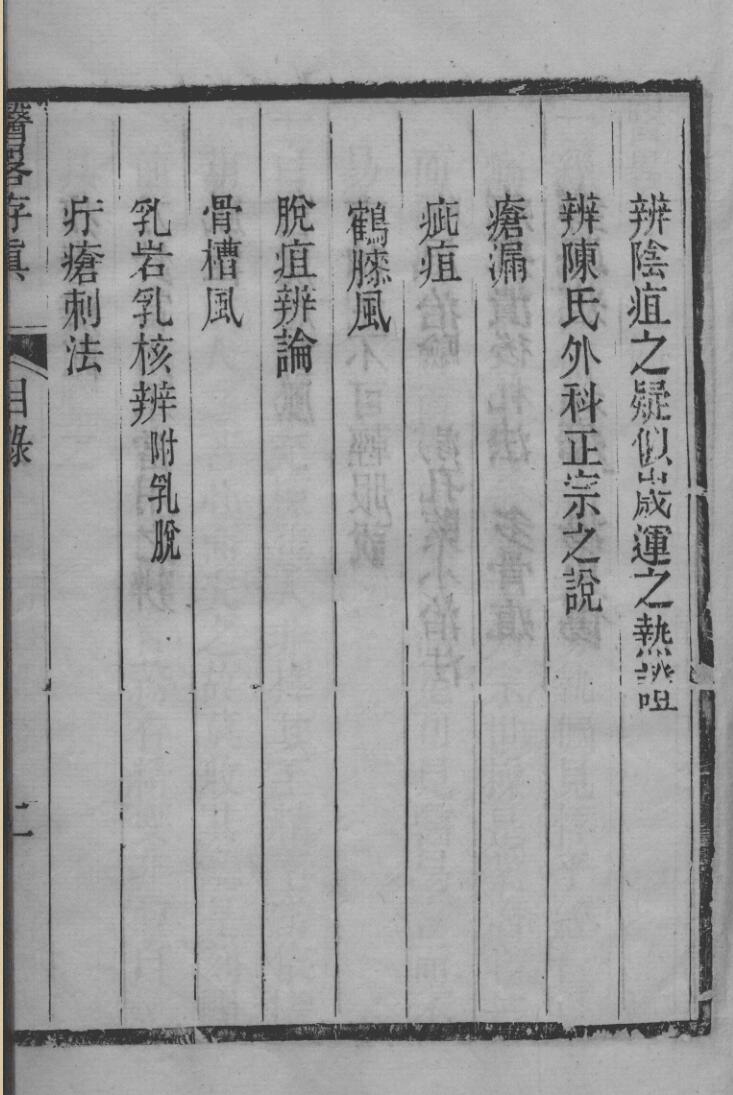 辨陰疽之疑似歲運之熱證
辨陳氏外科正宗之說
瘡漏
疵疽
鶴膝風
脫疽辨論
骨槽風
乳岩乳核辨附乳脫
疔瘡刺法
醫畧存真
目錄
二